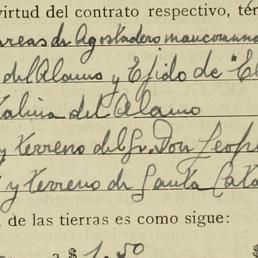 virtud del contrato respectivo, tér
areas de Agostadero mancomuna
del Alamo y Ejido de "El
talina del Alamo
y terreno del Sr. Don Leop
y terreno de Santa Cata
a de las tierras es como sigue:
a $ 1.50 $